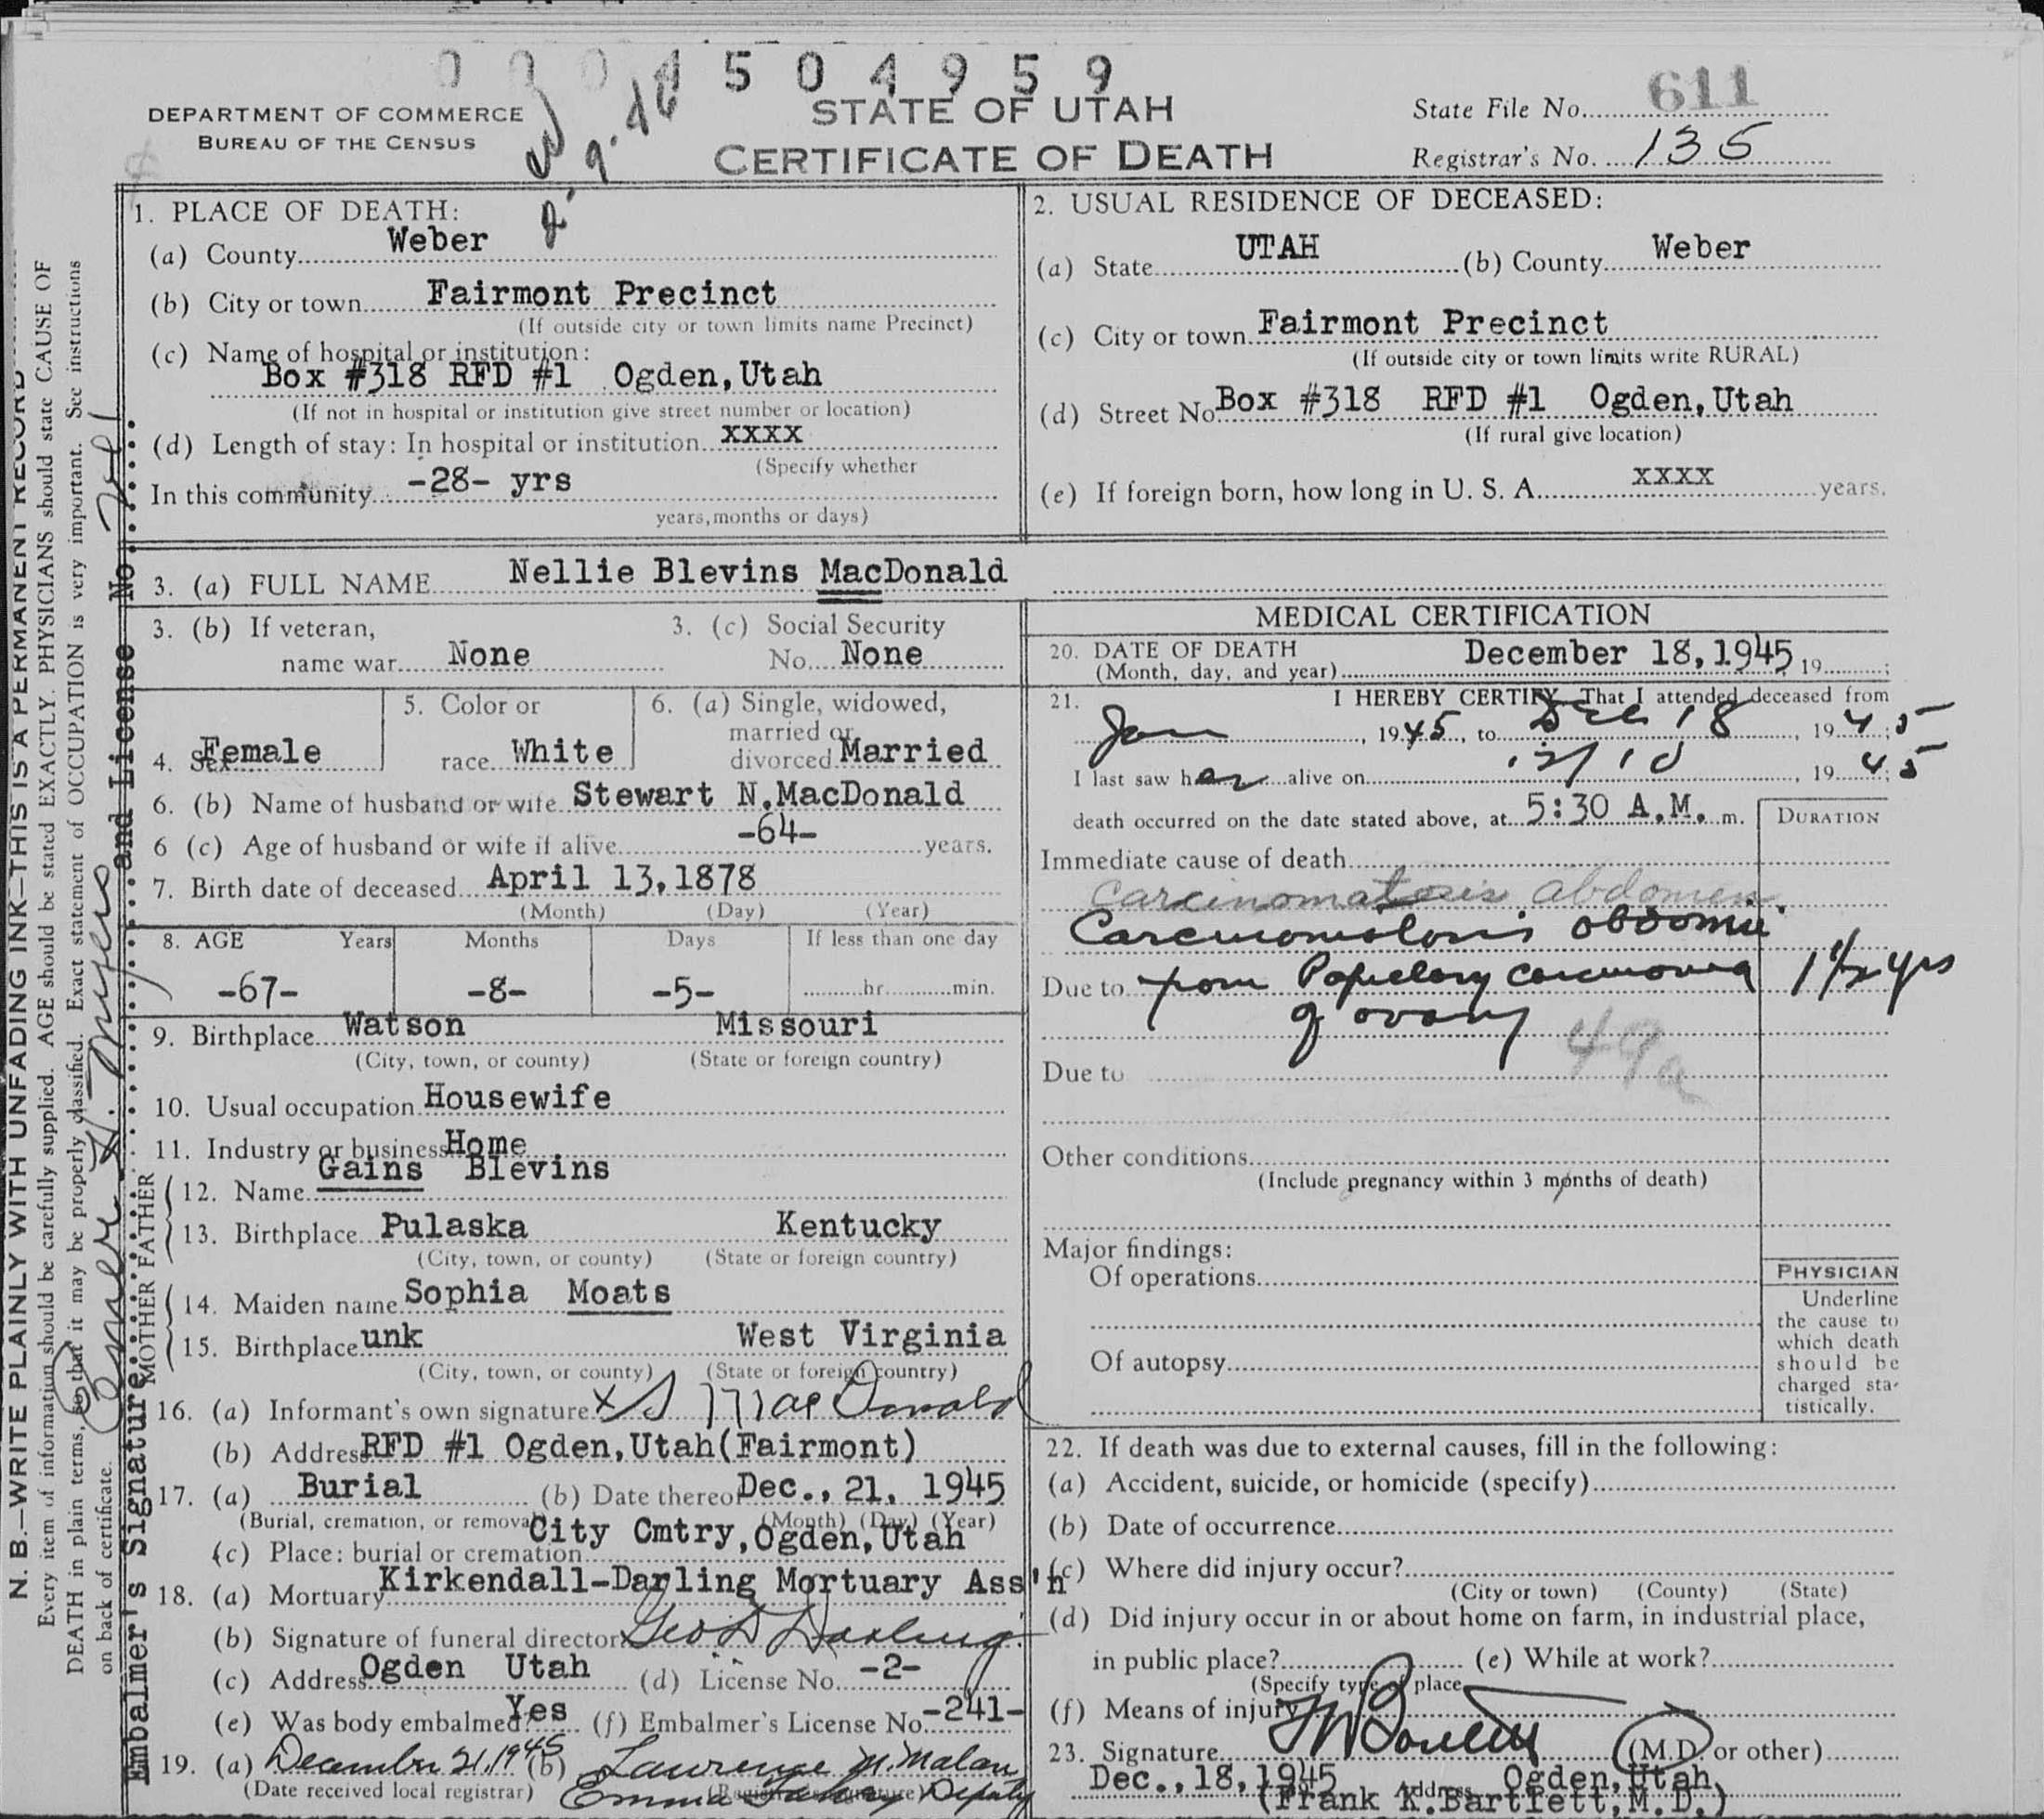 0 0 0 4 5 0 4 9 5 9
DEPARTMENT OF COMMERCE
BUREAU OF THE CENSUS
STATE OF UTAH
CERTIFICATE OF DEATH
State File No. 611
Registrar's No. 135
1. PLACE OF DEATH:
(a) County Weber
(b) City or town Fairmont Precinct
(If outside city or town limits name Precinct)
(c) Name of hospital or institution:
Box #318 RFD #1 Ogden,Utah
(If not in hospital or institution give street number or location)
(d) Length of stay: In hospital or institution xxxx
(Specify whether
In this community -28- yrs
years, months or days)
2. USUAL RESIDENCE OF DECEASED:
(a) State UTAH (b) County Weber
(c) City or town Fairmont Precinct
(If outside city or town limits write RURAL)
(d) Street No. Box #318 RFD #1 Ogden,Utah
(If rural give location)
(e) If foreign born, how long in U. S. A. xxxx years.
3. (a) FULL NAME Nellie Blevins MacDonald
3. (b) If veteran,
name war None
3. (c) Social Security
No. None
4. Sex Female
5. Color or
race White
6. (a) Single, widowed,
married or
divorced Married
6. (b) Name of husband or wife Stewart N.MacDonald
6 (c) Age of husband or wife if alive -64- years.
7. Birth date of deceased April 13,1878
(Month) (Day) (Year)
8. AGE Years Months Days If less than one day
-67- -8- -5- hr. min.
9. Birthplace Watson Missouri
(City, town, or county) (State or foreign country)
10. Usual occupation Housewife
11. Industry or business Home
FATHER
12. Name Gains Blevins
13. Birthplace Pulaska Kentucky
(City, town, or county) (State or foreign country)
MOTHER
14. Maiden name Sophia Moats
15. Birthplace unk West Virginia
(City, town, or county) (State or foreign country)
16. (a) Informant's own signature x S MacDonald
(b) Address RFD #1 Ogden,Utah(Fairmont)
17. (a) Burial (b) Date thereof Dec., 21, 1945
(Burial, cremation, or removal) (Month) (Day) (Year)
(c) Place: burial or cremation City Cmtry,Ogden,Utah
18. (a) Mortuary Kirkendall-Darling Mortuary Ass'n
(b) Signature of funeral director Geo D Darling
(c) Address Ogden Utah (d) License No. -2-
(e) Was body embalmed? Yes (f) Embalmer's License No. -241-
19. (a) December 21, 1945 (b) Lawrence M. Malan
(Date received local registrar) (Registrar's signature) Emma Deputy
MEDICAL CERTIFICATION
20. DATE OF DEATH
(Month, day, and year) December 18,1945 19 ;
21. I HEREBY CERTIFY That I attended deceased from
Jan , 1945, to Dec 18 , 19 45;
I last saw her alive on 12/18 , 19 45
death occurred on the date stated above, at 5:30 A.M. m.
DURATION
Immediate cause of death
Carcinomatosis abdomen
Carcinomatosis abdomin
Due to from Papillary carcinoma 1 1/2 yrs
of ovary
49a
Due to
Other conditions
(Include pregnancy within 3 months of death)
Major findings:
Of operations
Of autopsy
PHYSICIAN
Underline
the cause to
which death
should be
charged sta-
tistically.
22. If death was due to external causes, fill in the following:
(a) Accident, suicide, or homicide (specify)
(b) Date of occurrence
(c) Where did injury occur?
(City or town) (County) (State)
(d) Did injury occur in or about home on farm, in industrial place,
in public place? (e) While at work?
(Specify type of place
(f) Means of injury
23. Signature (M.D. or other)
Dec.,18,1945 Address Ogden,Utah
(Frank K.Bartlett,M.D.)
N. B.—WRITE PLAINLY WITH UNFADING INK—THIS IS A PERMANENT RECORD
Every item of information should be carefully supplied. AGE should be stated EXACTLY. PHYSICIANS should state CAUSE OF
DEATH in plain terms, so that it may be properly classified. Exact statement of OCCUPATION is very important. See instructions
on back of certificate.
Embalmer's Signature and License No.